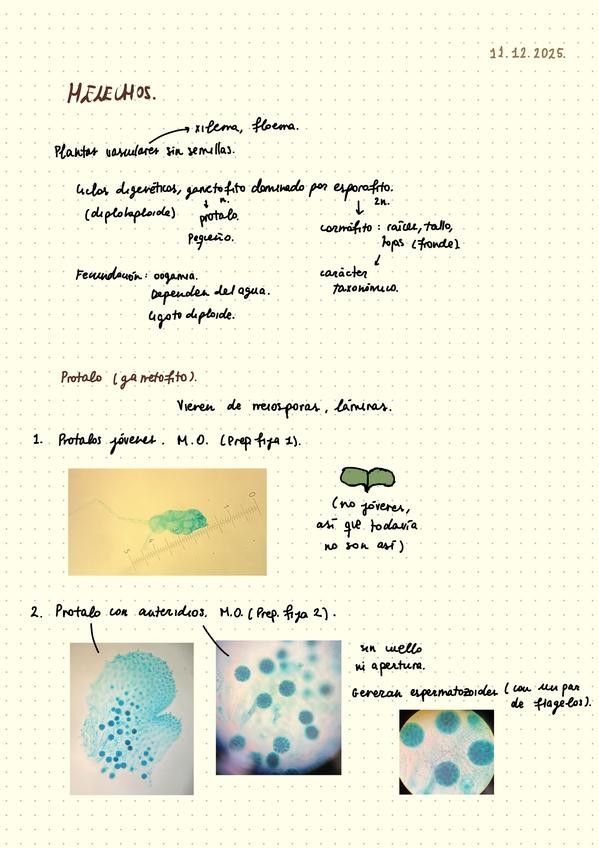 11.12.2025.
HELECHOS.
xilema, floema.
Plantas vasculares sin semillas.
Ciclos digenéticos, gametofito dominado por esporofito.
(diplohaploide)
n.
protalo.
Pequeño.
2n.
cormófito: raíces, tallo,
hojas (fronde)
carácter
taxonómico.
Fecundación: oogamia.
Dependen del agua.
Cigoto diploide.
Protalo (gametofito).
Vienen de meiosporas, láminas.
1. Protalos jóvenes. M.O. (Prep fija 1).
0
5
(no jóvenes,
así que todavía
no son así)
2. Protalo con anteridios. M.O. (Prep. fija 2).
sin cuello
ni apertura.
Generan espermatozoides (con un par
de flagelos).